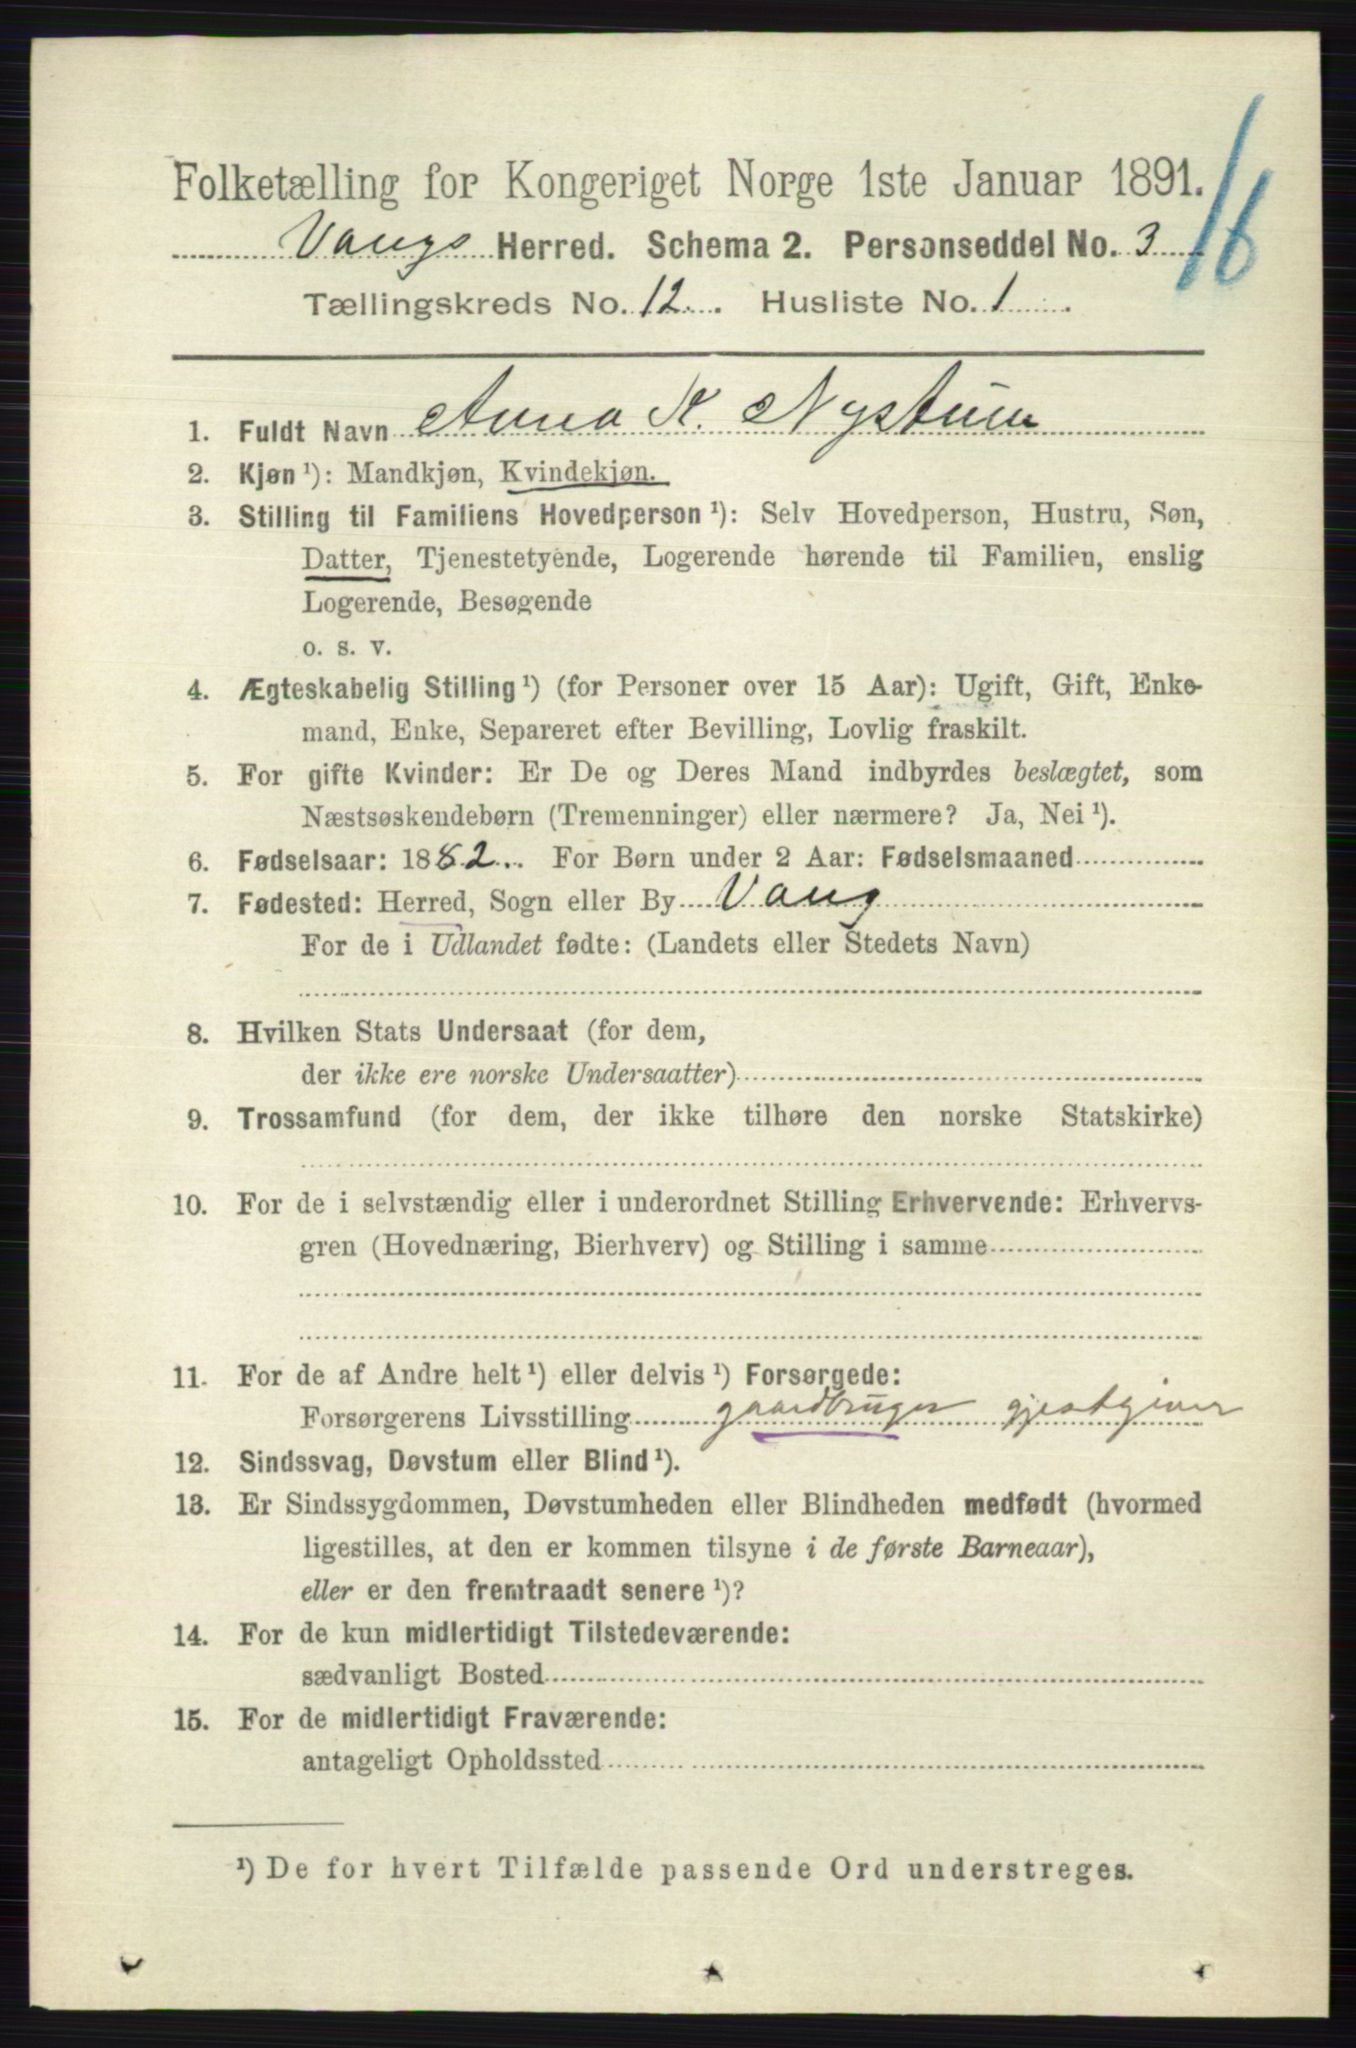 Folketælling for Kongeriget Norge 1ste Januar 1891.
16
Vangs Herred. Schema 2. Personseddel No. 3
Tællingskreds No. 12. Husliste No. 1.
1. Fuldt Navn Anna K. Nystuen
2. Kjøn¹): Mandkjøn, Kvindekjøn.
3. Stilling til Familiens Hovedperson¹): Selv Hovedperson, Hustru, Søn,
Datter, Tjenestetyende, Logerende hørende til Familien, enslig
Logerende, Besøgende
o. s. v.
4. Ægteskabelig Stilling¹) (for Personer over 15 Aar): Ugift, Gift, Enke-
mand, Enke, Separeret efter Bevilling, Lovlig fraskilt.
5. For gifte Kvinder: Er De og Deres Mand indbyrdes beslægtet, som
Næstsøskendebørn (Tremenninger) eller nærmere? Ja, Nei¹).
6. Fødselsaar: 1882. For Børn under 2 Aar: Fødselsmaaned
7. Fødested: Herred, Sogn eller By Vang
For de i Udlandet fødte: (Landets eller Stedets Navn)
8. Hvilken Stats Undersaat (for dem,
der ikke ere norske Undersaatter)
9. Trossamfund (for dem, der ikke tilhøre den norske Statskirke)
10. For de i selvstændig eller i underordnet Stilling Erhvervende: Erhvervs-
gren (Hovednæring, Bierhverv) og Stilling i samme
11. For de af Andre helt¹) eller delvis¹) Forsørgede:
Forsørgerens Livsstilling gaardbruger gjestgiver
12. Sindssvag, Døvstum eller Blind¹).
13. Er Sindssygdommen, Døvstumheden eller Blindheden medfødt (hvormed
ligestilles, at den er kommen tilsyne i de første Barneaar),
eller er den fremtraadt senere¹)?
14. For de kun midlertidigt Tilstedeværende:
sædvanligt Bosted
15. For de midlertidigt Fraværende:
antageligt Opholdssted
¹) De for hvert Tilfælde passende Ord understreges.